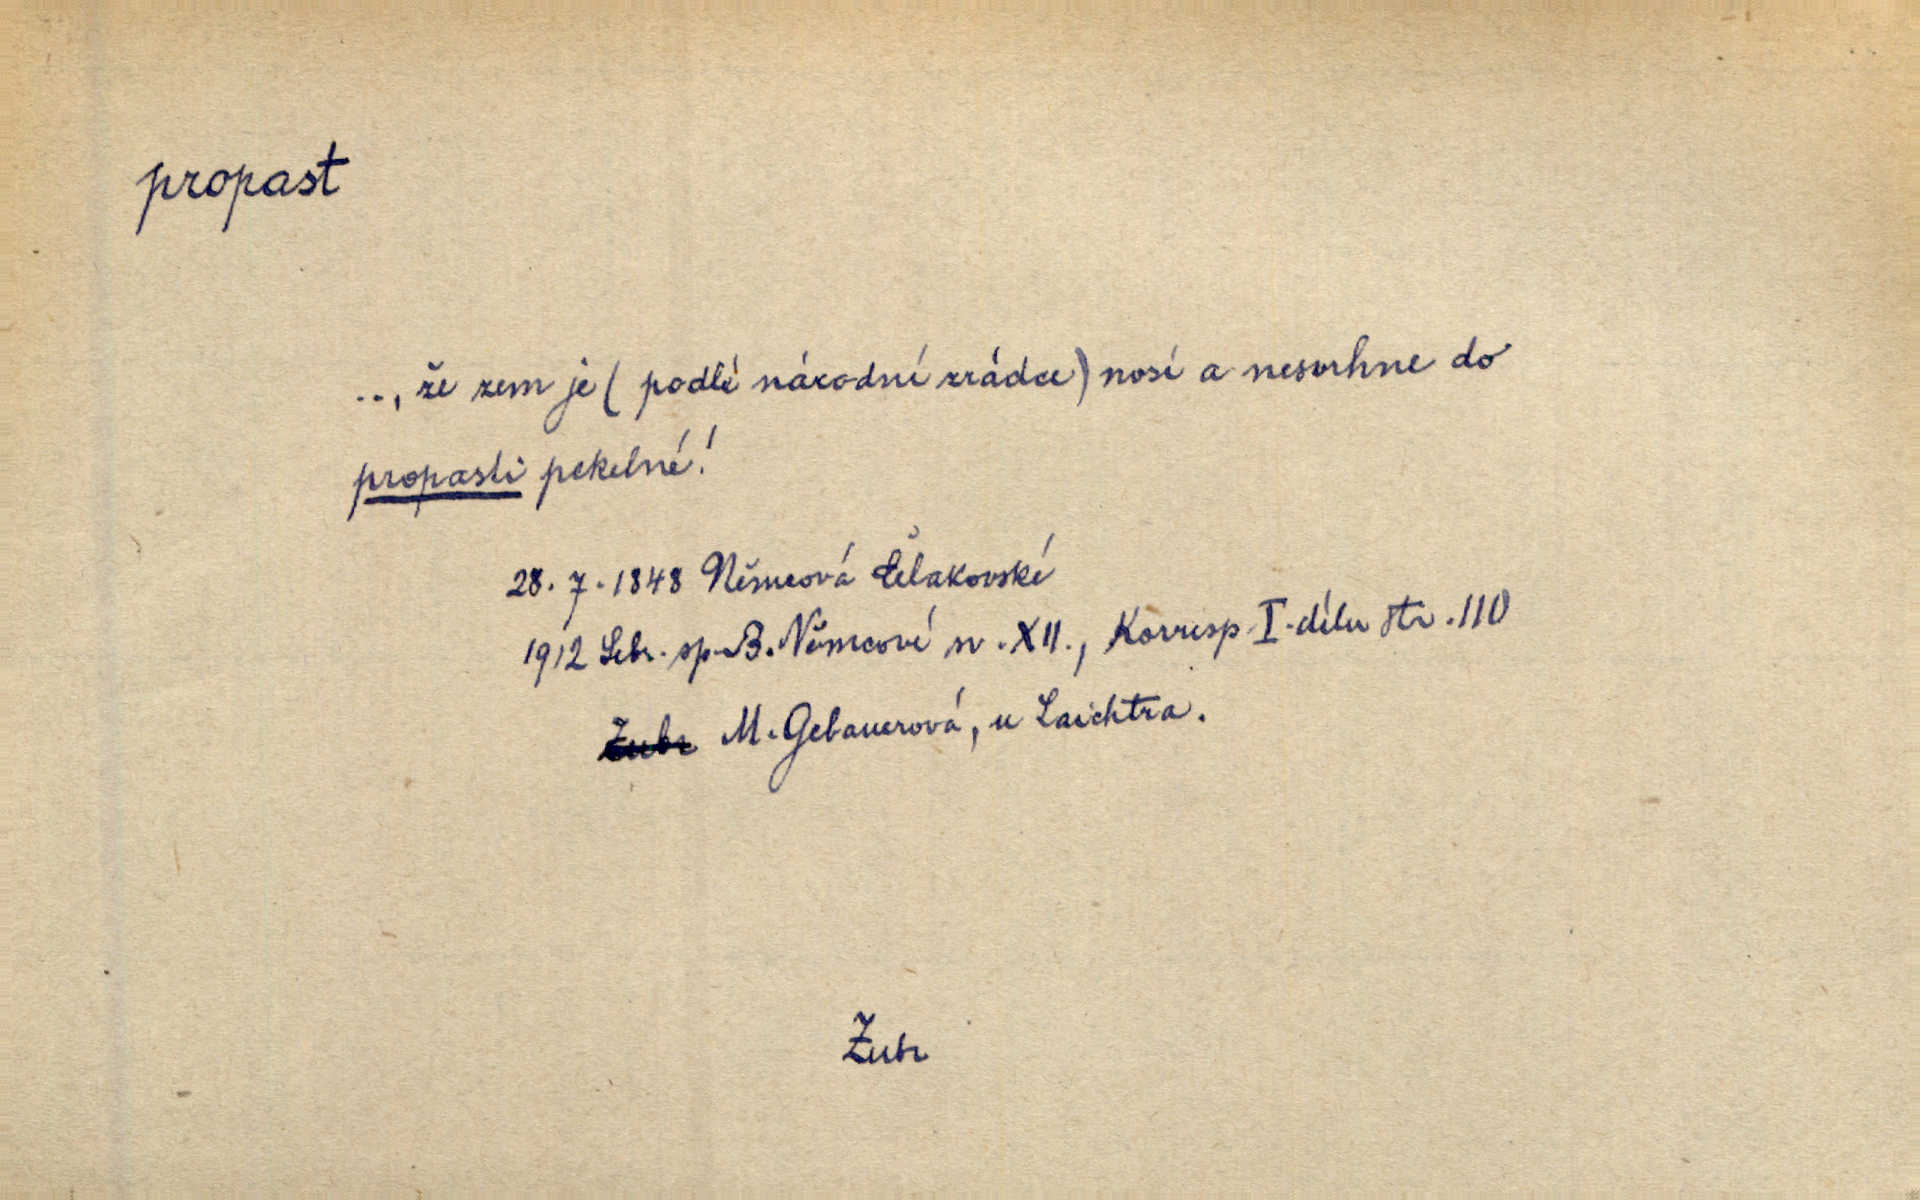 propast
.., že zem je ( podlé národní zrádce) nosí a nesvrhne do
propasti pekelné!
28. 7. 1848 Němcová Čelakovské
1912 Sebr. sp. B. Němcové sv. XII., Korresp. I. dílu str. 110
Zubr M. Gebauerová, u Laichtra.
Zubr